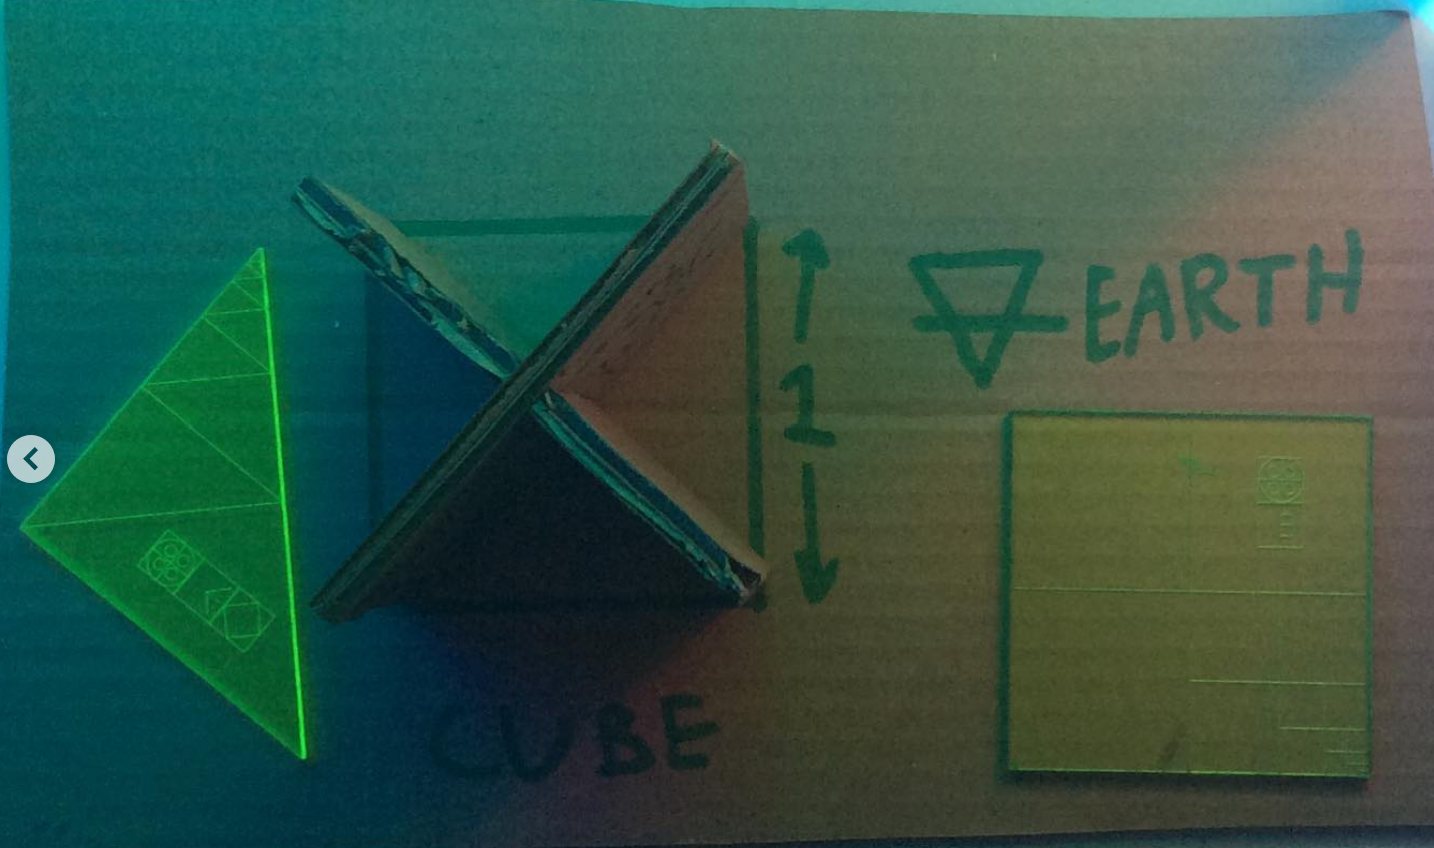 1
EARTH
CUBE